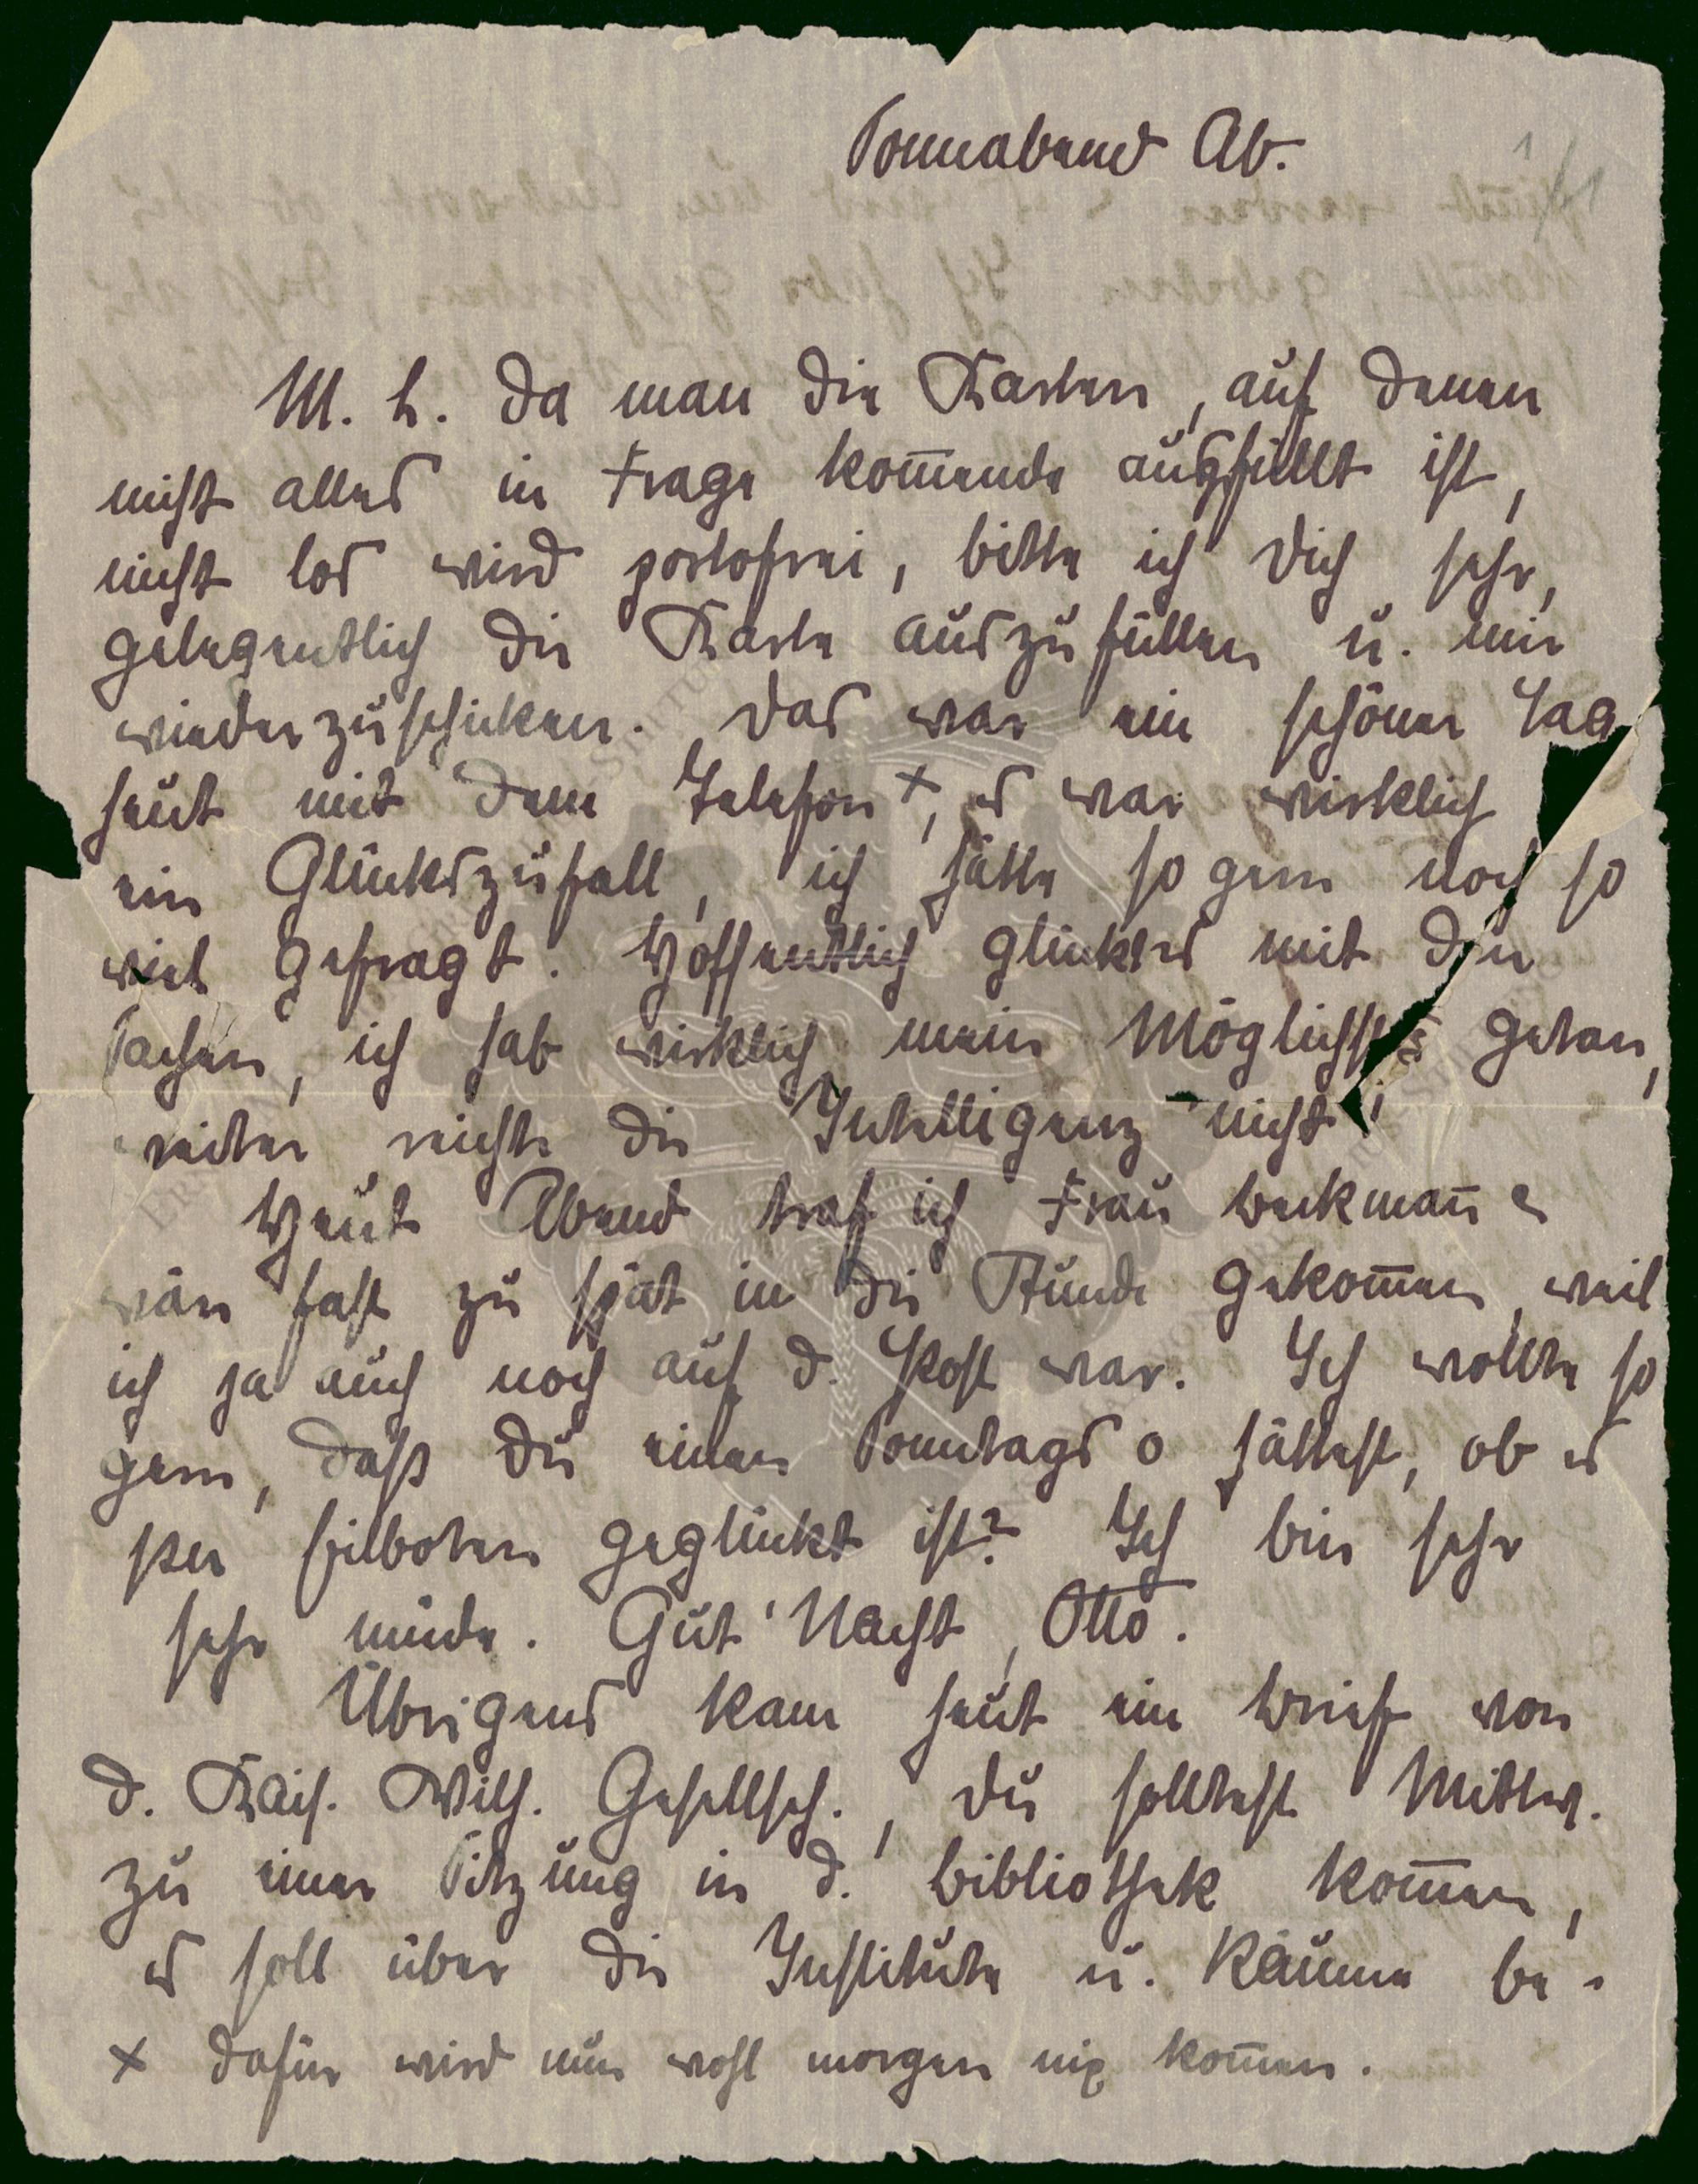 Sonnabend Ab.
M. L. Da man die Karten, auf denen
nicht alles in Frage kom̅ende ausgfüllt ist,
nicht los wird portofrei, bitte ich Dich sehr,
gelegentlich die Karte auszufüllen u. mir
wiederzuschicken. Das war ein schöner Tag
heut mit dem Telefon ×, es war wirklich
ein Glückszufall, ich hätte so gern noch so
viel gefragt. Hoffentlich glückts mit den
Sachen, ich hab wirklich mein Möglichstes getan,
weiter reichte die Intelligenz nicht!
Heut Abend traf ich Frau Beckman̅ &
wär fast zu spät in die Stunde gekom̅en, weil
ich ja auch noch auf d. Post war. Ich wollte so
gern, daß Du einen Sonntags o hättest, ob es
per Eilboten geglückt ist? Ich bin sehr
sehr müde. Gut' Nacht, Otto.
Übrigens kam heut ein Brief von
d. Kais. Wilh. Gesellsch., Du solltest Mittw.
zu einer Sitzung in d. Bibliothek kom̅en,
es soll über die Institute u. Räume be-
× dafür wird nun wohl morgen nix kom̅en.